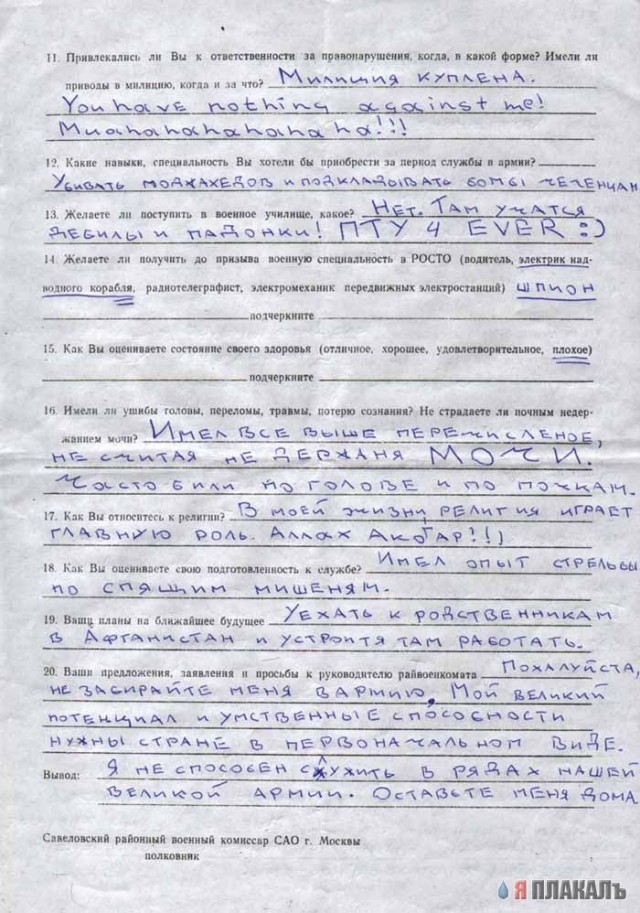 11. Привлекались ли Вы к ответственности за правонарушения, когда, в какой форме? Имели ли
приводы в милицию, когда и за что? Милиция куплена.
You have nothing against me!
Миаhahahahahaha!!!
12. Какие навыки, специальность Вы хотели бы приобрести за период службы в армии?
Убивать моджахедов и подкладывать бомбы чеченцам
13. Желаете ли поступить в военное училище, какое? Нет. Там учатся
дебилы и падонки! ПТУ 4 EVER :)
14. Желаете ли получить до призыва военную специальность в РОСТО (водитель, электрик над-
водного корабля, радиотелеграфист, электромеханик передвижных электростанций) шпион
подчеркните
15. Как Вы оцениваете состояние своего здоровья (отличное, хорошее, удовлетворительное, плохое)
подчеркните
16. Имели ли ушибы головы, переломы, травмы, потерю сознания? Не страдаете ли ночным недер-
жанием мочи? Имел все выше перечисленое,
не считая не держаня МОЧИ.
Часто били по голове и по почкам.
17. Как Вы относитесь к религии? В моей жизни, религия играет
главную роль. Аллах Акбар!!!)
18. Как Вы оцениваете свою подготовленность к службе? Имел опыт стрельбы
по спящим мишеням.
19. Ваши планы на ближайшее будущее Уехать к родственникам
в Афганистан и устроится там работать.
20. Ваши предложения, заявления и просьбы к руководителю райвоенкомата Пожалуйста,
не забирайте меня в армию, Мой великий
потенциал и умственные способности
нужны стране в первоначальном виде.
Вывод: Я не способен служить в рядах нашей
великой армии. Оставьте меня дома
Савеловский районный военный комиссар САО г. Москвы
полковник
Я ПЛАКАЛЪ